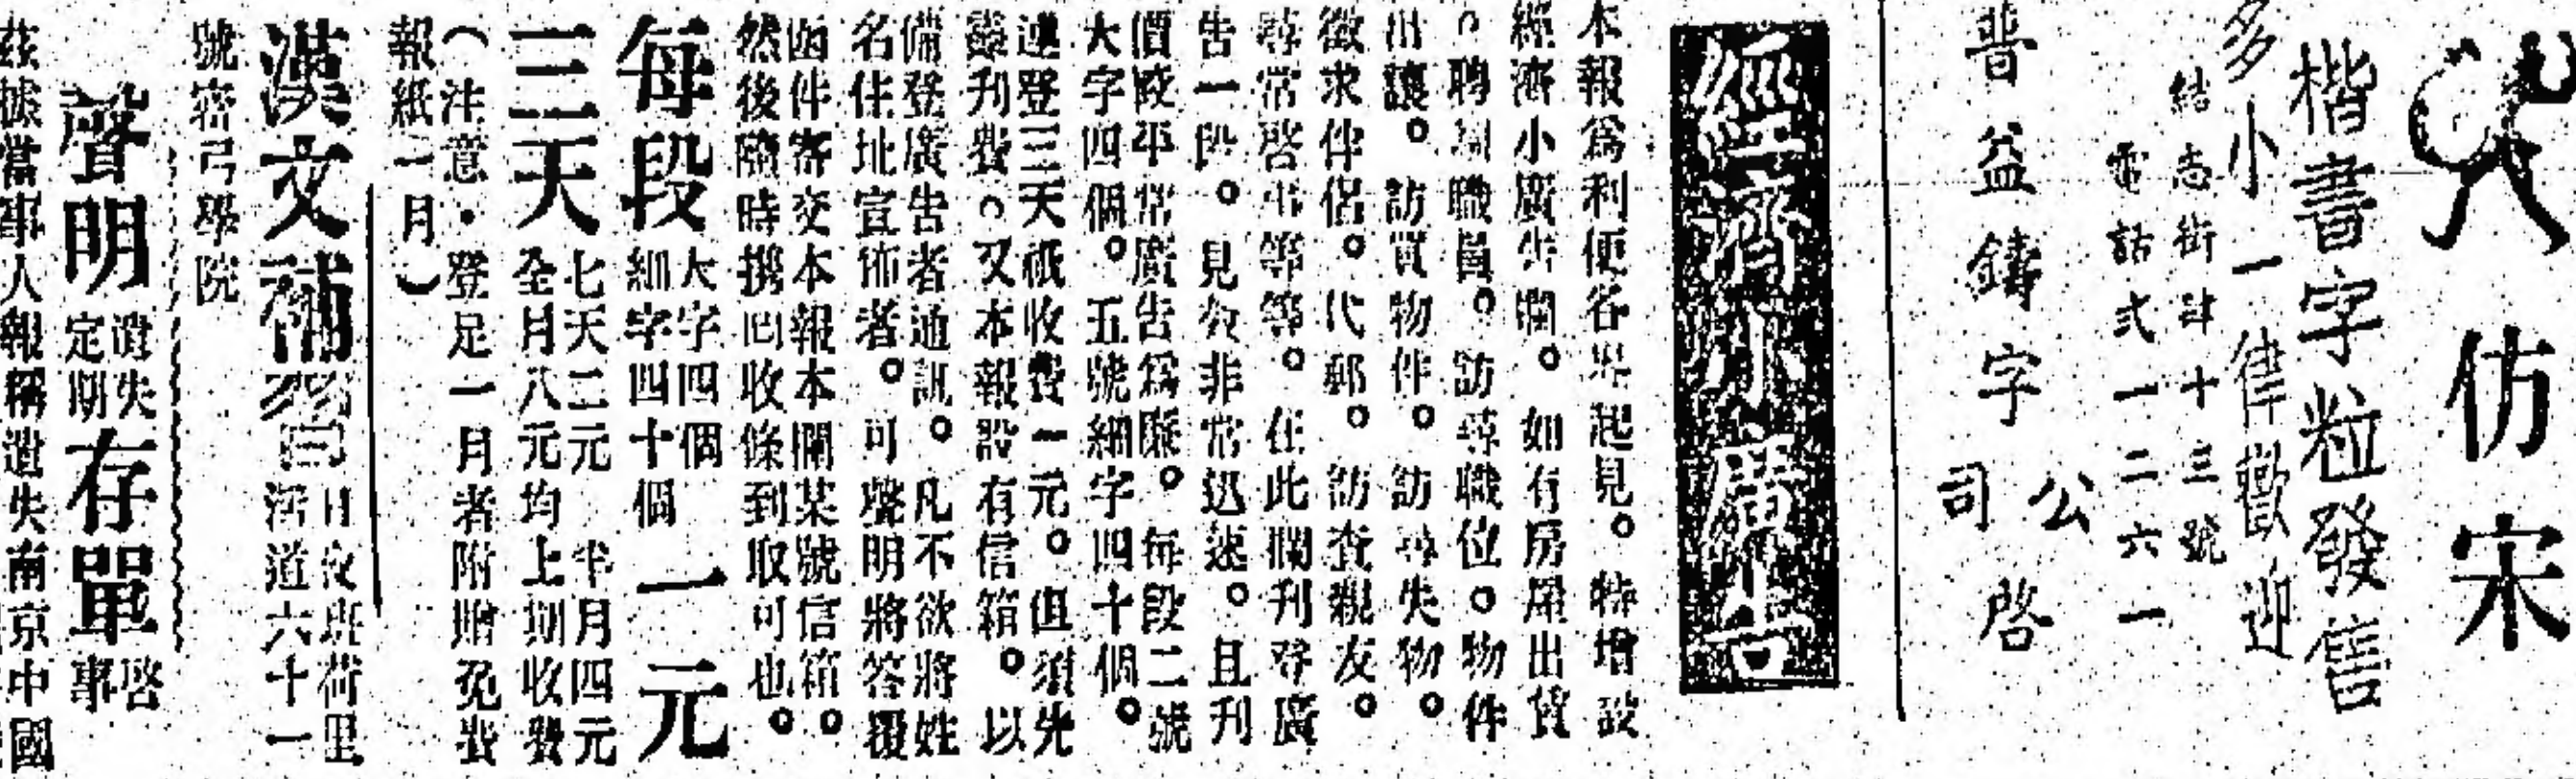 仿宋
楷書字粒發售
多小一律歡迎
結志街肆十三號
電話式一二六一
普益鑄字公司啓
經濟小廣告
本報爲利便各界起見。特增設
經濟小廣告欄。如有房屋出賃
。聘請職員。訪尋職位。物件
出讓。訪買物件。訪尋失物。
徵求伴侶。代郵。訪查親友。
尋常啓事等等。在此欄刊登廣
告一段。見效非常迅速。且刊
價較平常廣告爲廉。每段二號
大字四個。五號細字四十個。
連登三天祇收費一元。但須先
繳刊費。又本報設有信箱。以
備登廣告者通訊。凡不欲將姓
名住址宣佈者。可聲明將答覆
函件寄交本報本欄某號信箱。
然後隨時携回收條到取可也。
每段 大字四個 細字四十個 一元
三天 七天二元 半月四元
全月八元均上期收費
(注意・登足一月者附贈免費
報紙一月)
漢文補習 日夜班荷里
活道六十一
號密弓學院
聲明 遺失 定期 存單 啓事
茲據當事人報稱遺失南京中國